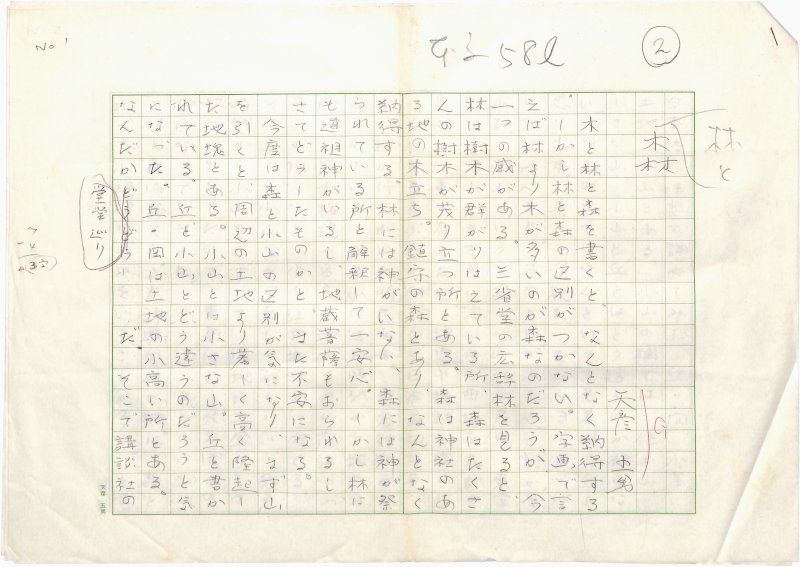 1
②
58l
No 1
林と
森
天彦 五男
G
木と林と森を書くと、なんとなく納得する
。しかし林と森の区別がつかない。字画で言
えば林より木が多いのが森なのだろうが、今
一つの蔵がある。三省堂の広辞林を見ると、
林は樹木が群がりはえている所、森はたくさ
んの樹木が茂り立つ所とある。森は神社のあ
る地の木立ち。鎮守の森とあり、なんとなく
納得する。林には神がいない、森には神が祭
られている所と解釈して一安心。しかし林に
も道祖神がいるし、地蔵菩薩もおられるし
さてどうしたものかと、また不安になる。
今度は森と小山の区別が気になり、まず山
を引くと、周辺の土地より著しく高く隆起し
た地塊とある。小山とは小さな山。丘と書か
れている。丘と小山とどう違うのだろうと気
になった。丘・岡は土地の小高い所とある。
なんだか だ そこで講談社の
堂堂巡り
天彦 五男